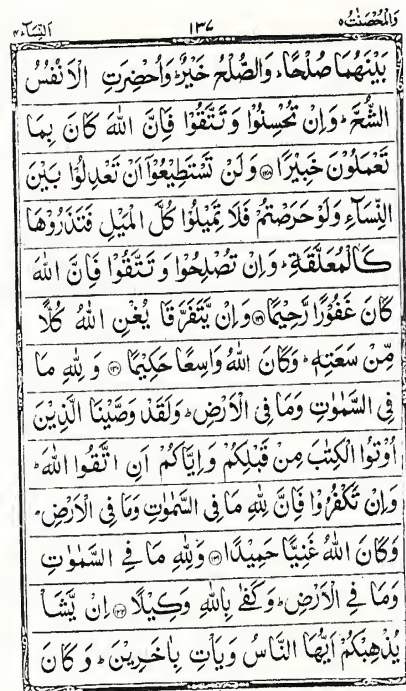 وَالْمُحْصَنٰتُ ٥ ١٣٧ اَلنِّسَآءِ ٤
بَيْنَهُمَا صُلْحًا ؕ وَالصُّلْحُ خَيْرٌ ؕ وَاُحْضِرَتِ الْاَنْفُسُ
الشُّحَّ ؕ وَاِنْ تُحْسِنُوْا وَتَتَّقُوْا فَاِنَّ اللّٰهَ كَانَ بِمَا
تَعْمَلُوْنَ خَبِيْرًا ۝١٢٨ وَلَنْ تَسْتَطِيْعُوْٓا اَنْ تَعْدِلُوْا بَيْنَ
النِّسَآءِ وَلَوْ حَرَصْتُمْ فَلَا تَمِيْلُوْا كُلَّ الْمَيْلِ فَتَذَرُوْهَا
كَالْمُعَلَّقَةِ ؕ وَاِنْ تُصْلِحُوْا وَتَتَّقُوْا فَاِنَّ اللّٰهَ
كَانَ غَفُوْرًا رَّحِيْمًا ۝١٢٩ وَاِنْ يَّتَفَرَّقَا يُغْنِ اللّٰهُ كُلًّا
مِّنْ سَعَتِهٖ ؕ وَكَانَ اللّٰهُ وَاسِعًا حَكِيْمًا ۝١٣٠ وَلِلّٰهِ مَا
فِي السَّمٰوٰتِ وَمَا فِي الْاَرْضِ ؕ وَلَقَدْ وَصَّيْنَا الَّذِيْنَ
اُوْتُوا الْكِتٰبَ مِنْ قَبْلِكُمْ وَاِيَّاكُمْ اَنِ اتَّقُوا اللّٰهَ ؕ
وَاِنْ تَكْفُرُوْا فَاِنَّ لِلّٰهِ مَا فِي السَّمٰوٰتِ وَمَا فِي الْاَرْضِ ؕ
وَكَانَ اللّٰهُ غَنِيًّا حَمِيْدًا ۝١٣١ وَلِلّٰهِ مَا فِي السَّمٰوٰتِ
وَمَا فِي الْاَرْضِ ؕ وَكَفٰى بِاللّٰهِ وَكِيْلًا ۝١٣٢ اِنْ يَّشَاْ
يُذْهِبْكُمْ اَيُّهَا النَّاسُ وَيَاْتِ بِاٰخَرِيْنَ ؕ وَكَانَ